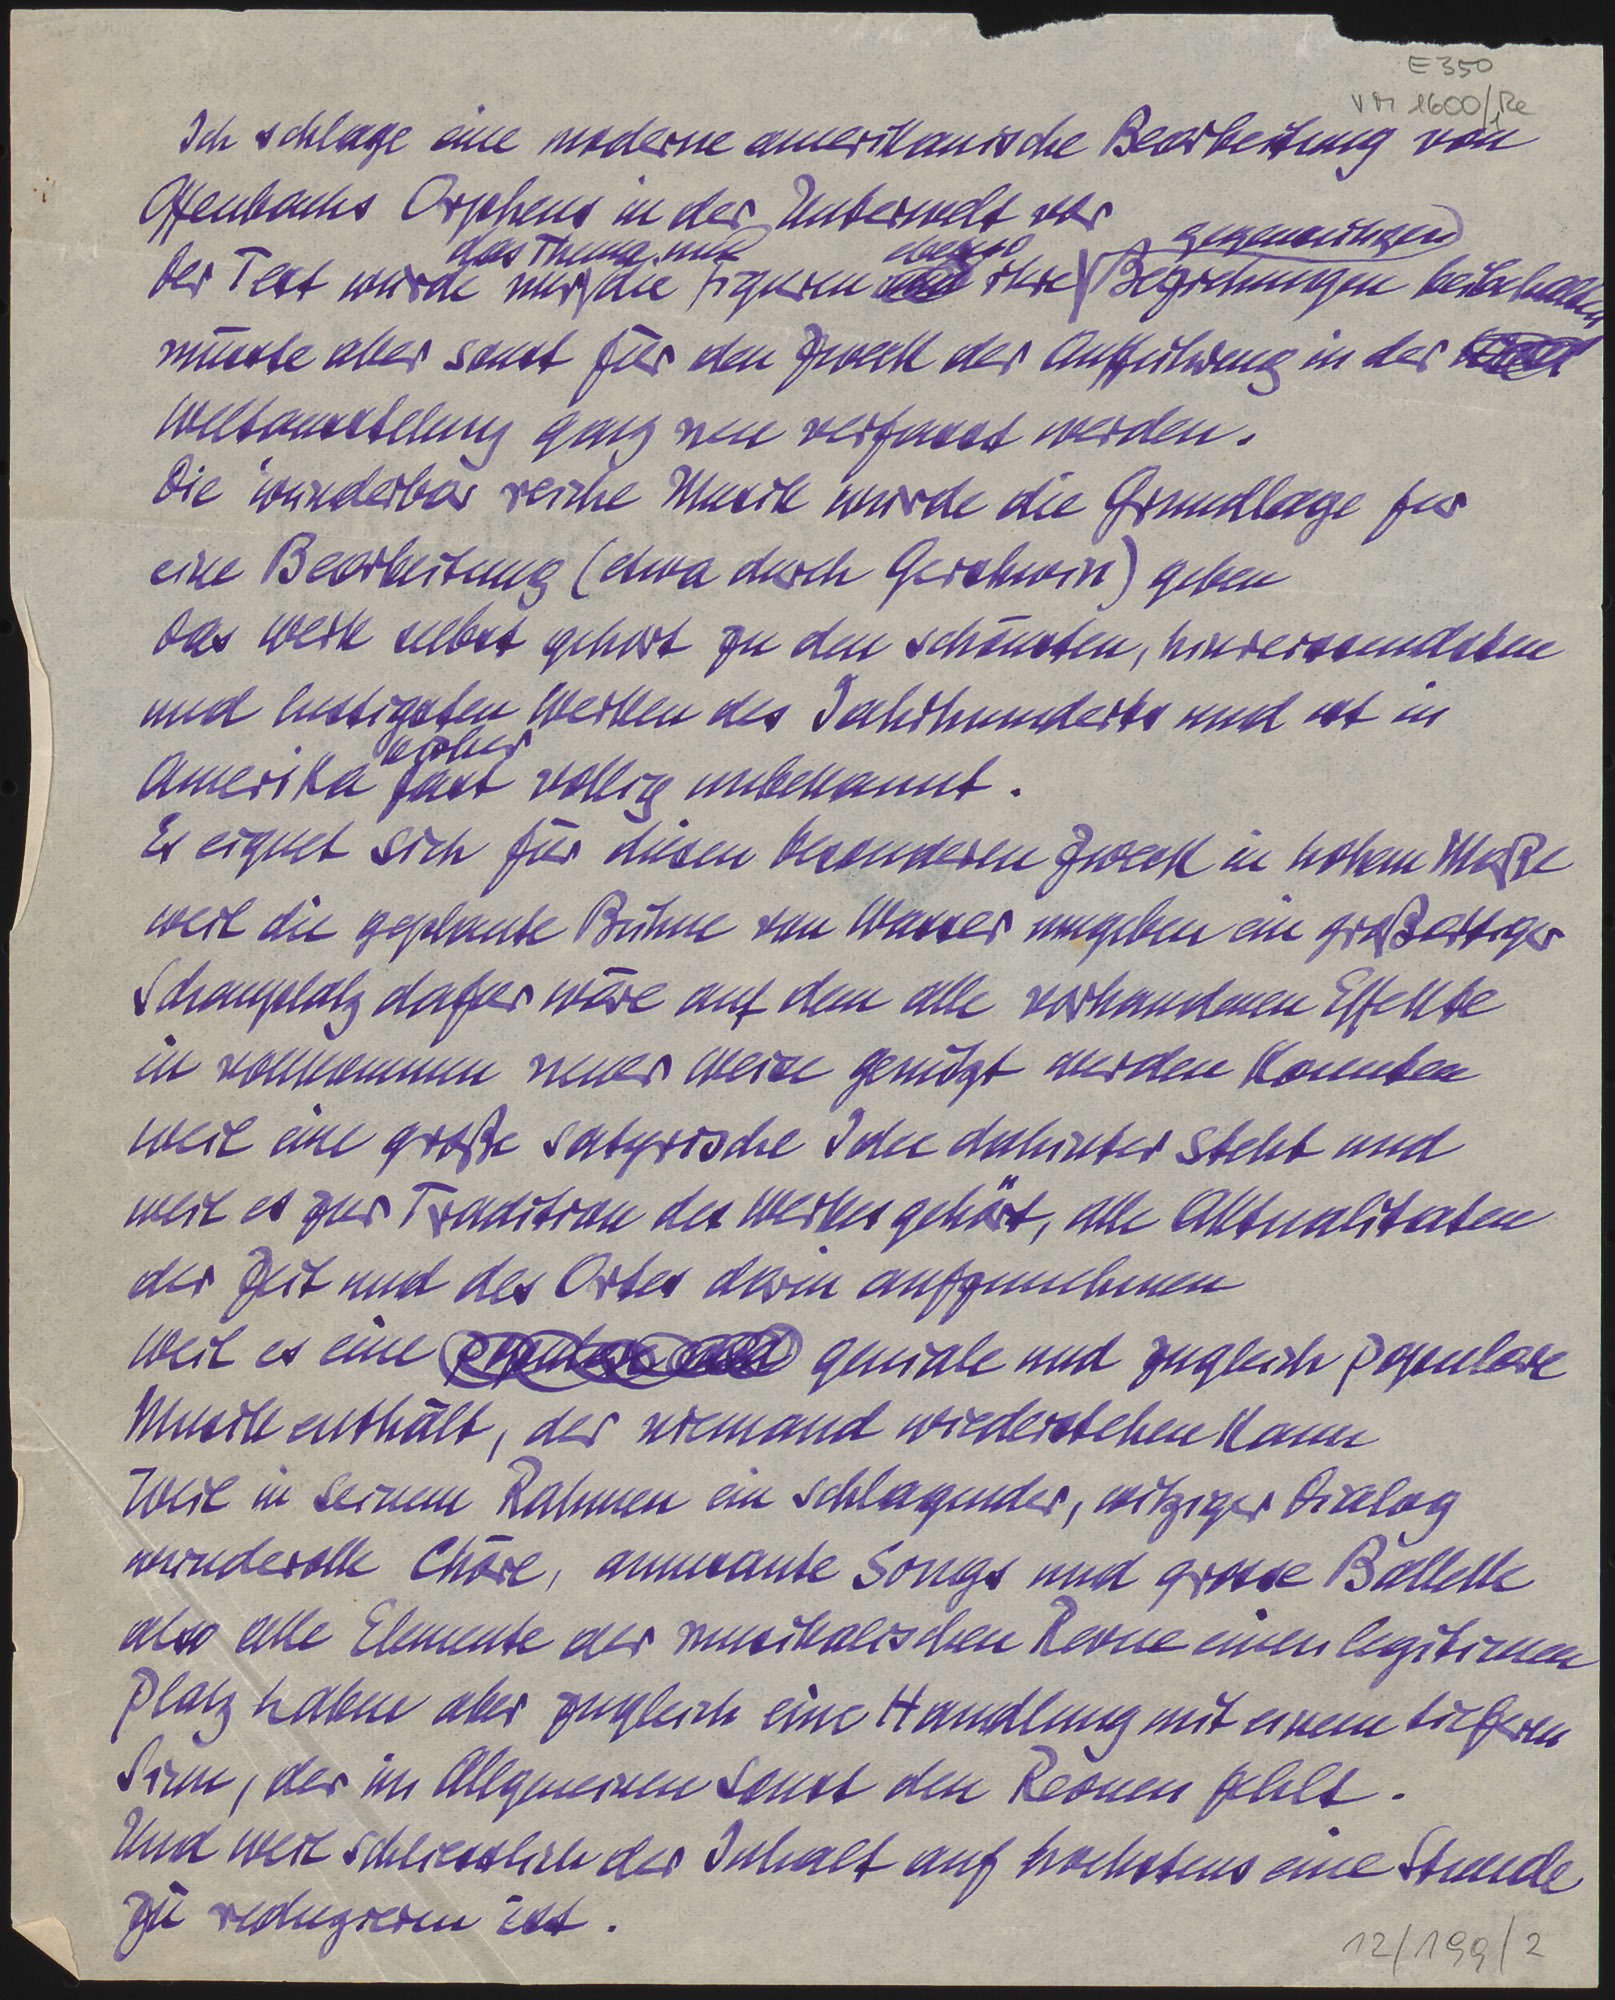 E 350
VM 1600/1 Re
Ich schlage eine moderne amerikanische Bearbeitung von
Offenbachs Orpheus in der Unterwelt vor
das Thema mit ebenso gegenseitigen
Der Text wurde nur die Figuren ihre Beziehungen beibehalten
müsste aber sonst für den Zweck der Aufführung in der
Weltausstellung ganz neu verfasst werden.
Die wunderbar reiche Musik wurde die Grundlage fur
eine Bearbeitung (etwa durch Gershwin) geben
Das Werk selbst gehort zu den schönsten, hinreissendsten
und lustigsten Werken des Jahrhunderts und ist in
bisher
Amerika fast vollig unbekannt.
Es eignet sich für diesen besonderen Zweck in hohem Maße
weil die geplante Bühne von Wasser umgeben ein großartiger
Schauplatz dafür wäre auf dem alle vorhandenen Effekte
in vollkommen neuer Weise genützt werden konnten
weil eine große satyrische Idee dahinter steht und
weil es zur Tradition des Werkes gehört, alle Aktualitaten
der Zeit und des Ortes darin aufzunehmen
weil es eine populare und geniale und zugleich populare
Musik enthält, der niemand wiederstehen kann
Weil in seinem Rahmen ein schlagender, witziger Dialog
wundervolle Chöre, amusante Songs und grosse Ballette
also alle Elemente der musikalischen Revue einen legitimen
Platz haben aber zugleich eine Handlung mit einem tieferen
Sinn, der im Allgemeinen sonst den Revuen fehlt.
Und weil schliesslich der Inhalt auf hochstens eine Stunde
zu reduzieren ist.
12/199/2